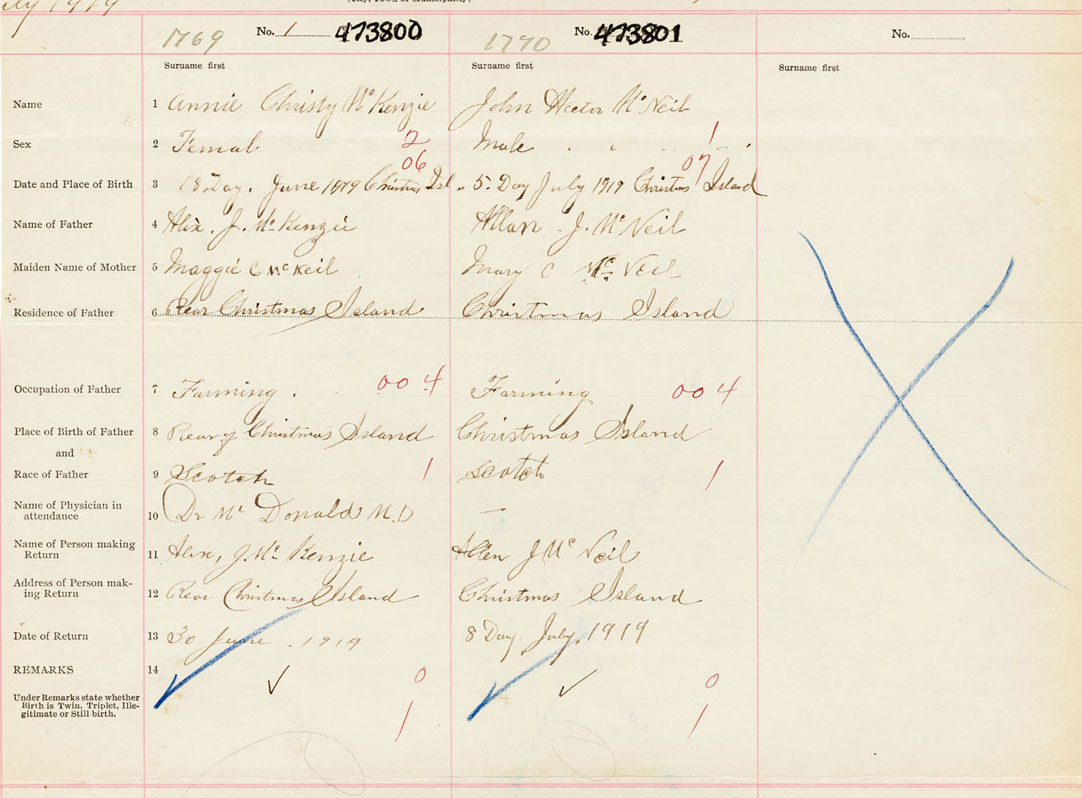 July 1919
(City, Town or Municipality)
1769 No. 1 473800 1770 No. 473801 No.
Surname first Surname first Surname first
Name 1 Annie Christy McKenzie John Hector McNeil
Sex 2 Femal 2 Male 1
06 07
Date and Place of Birth 3 18 Day. June 1919 Christmas Isl 5 Day July 1919 Christmas Island
Name of Father 4 Alix. J. McKenzie Allan J. McNeil
Maiden Name of Mother 5 Maggie C McNeil Mary C McNeil
Residence of Father 6 Rear Christmas Island Christmas Island
Occupation of Father 7 Farming. 004 Farming 004
Place of Birth of Father 8 Rear of Christmas Island Christmas Island
and
Race of Father 9 Scotch 1 Scotch 1
Name of Physician in
attendance 10 Dr McDonald M.D —
Name of Person making
Return 11 Alex, J. McKenzie Allen J McNeil
Address of Person mak-
ing Return 12 Rear Christmas Island Christmas Island
Date of Return 13 30 June. 1919 8 Day. July, 1919
REMARKS 14 ✓ 0 ✓ 0
Under Remarks state whether
Birth is Twin, Triplet, Ille-
gitimate or Still birth. 1 1